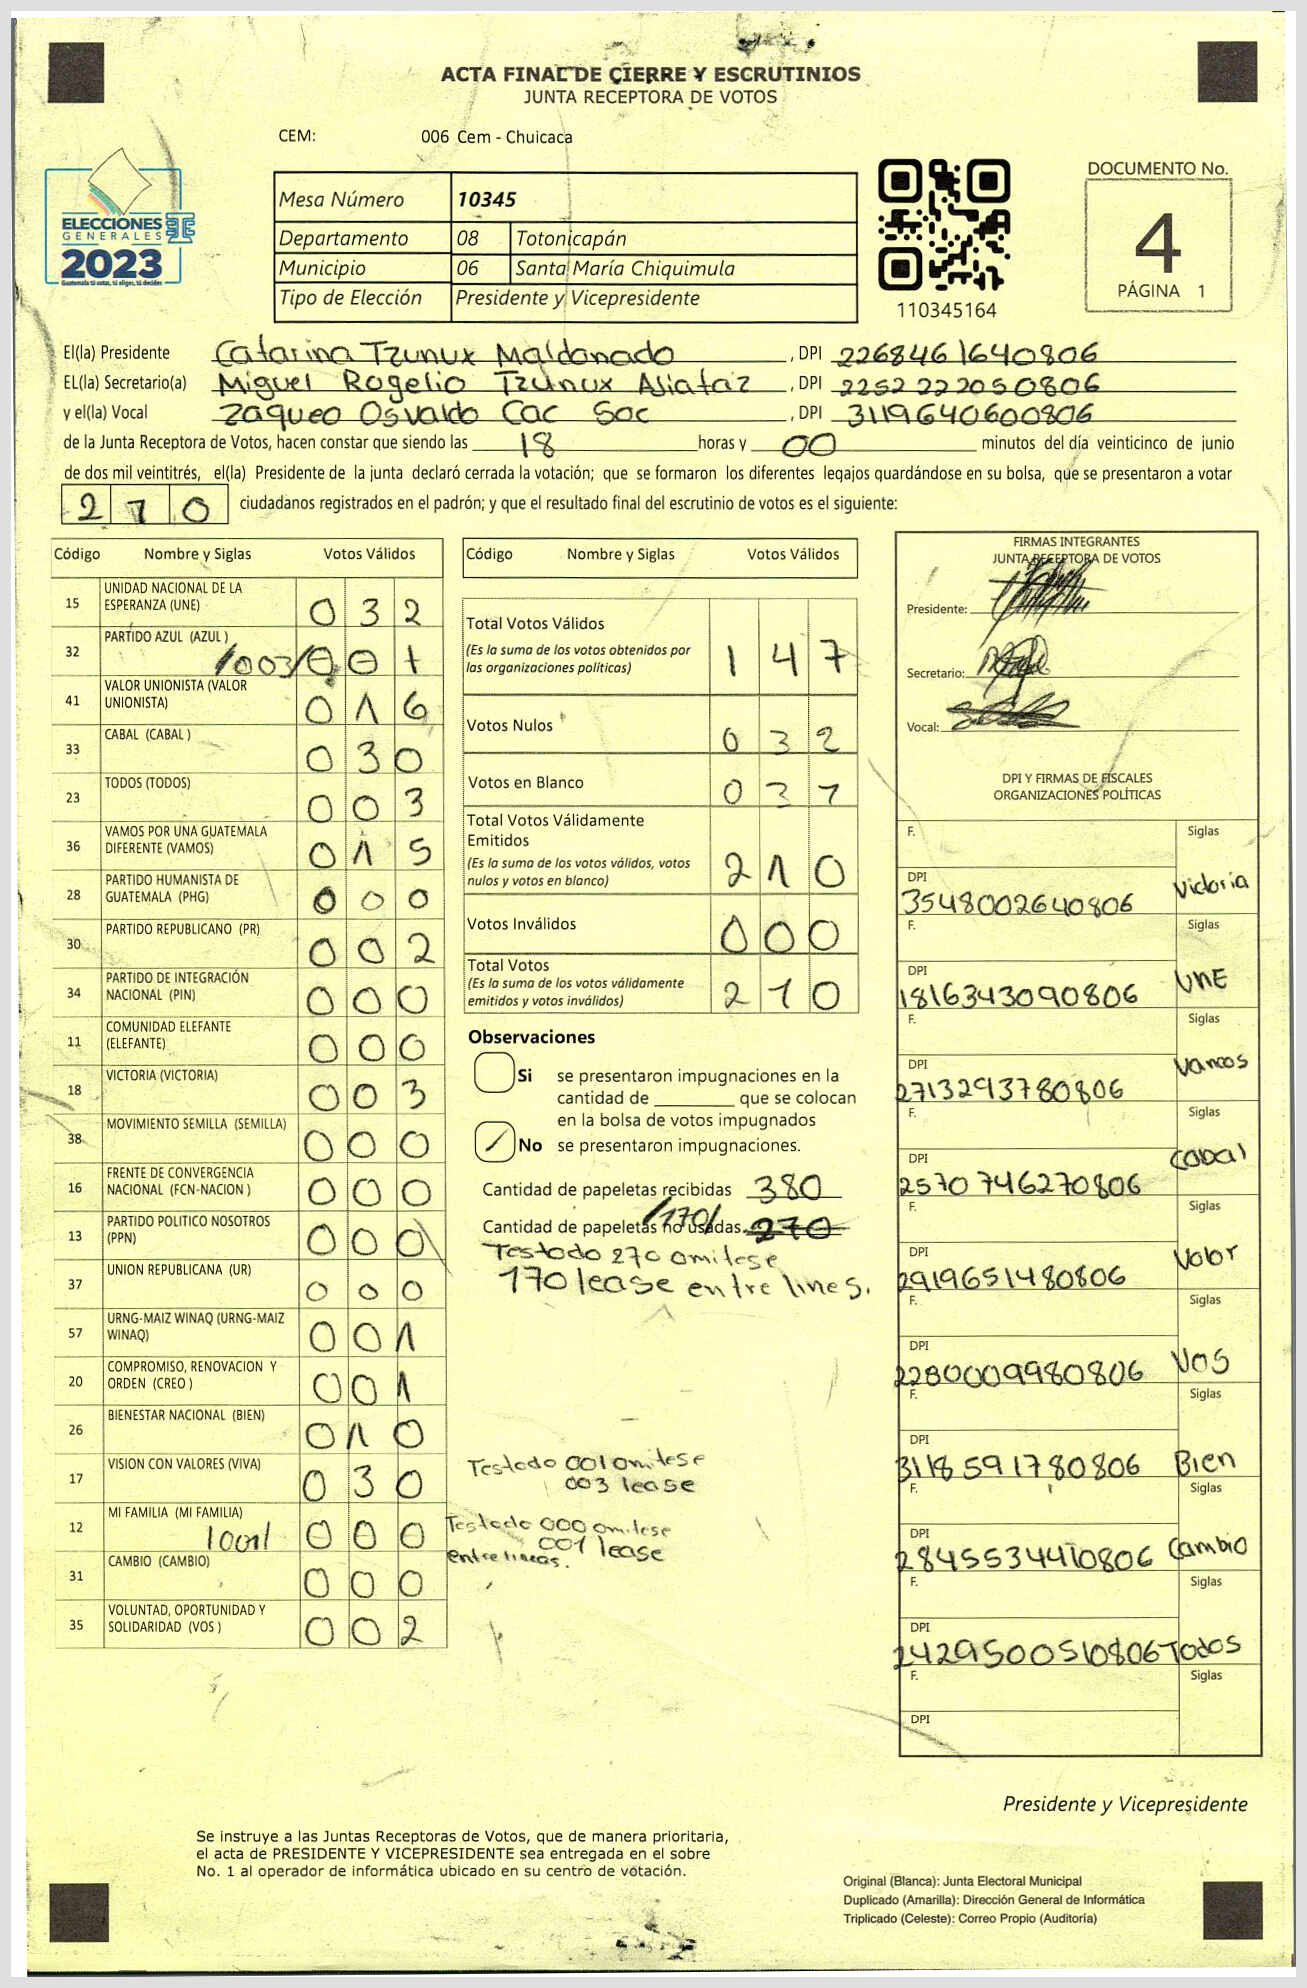 ACTA FINAL DE CIERRE Y ESCRUTINIOS
JUNTA RECEPTORA DE VOTOS
CEM: 006 Cem - Chuicaca
DOCUMENTO No.
4
PÁGINA 1
ELECCIONES
GENERALES
2023
Guatemala tú votas, tú eliges, tú decides
Mesa Número 10345
Departamento 08 Totonicapán
Municipio 06 Santa María Chiquimula
Tipo de Elección Presidente y Vicepresidente
110345164
El(la) Presidente Catarina Tzunux Maldonado , DPI 2268461640806
EL(la) Secretario(a) Miguel Rogelio Tzunux , DPI 2252222050806
y el(la) Vocal Zaqueo Osvaldo Cac Soc , DPI 3119640600806
de la Junta Receptora de Votos, hacen constar que siendo las 18 horas y 00 minutos del día veinticinco de junio
de dos mil veintitrés, el(la) Presidente de la junta declaró cerrada la votación; que se formaron los diferentes legajos guardándose en su bolsa, que se presentaron a votar
210 ciudadanos registrados en el padrón; y que el resultado final del escrutinio de votos es el siguiente:
Código Nombre y Siglas Votos Válidos
15 UNIDAD NACIONAL DE LA ESPERANZA (UNE) 032
32 PARTIDO AZUL (AZUL ) /003/ 001
41 VALOR UNIONISTA (VALOR UNIONISTA) 016
33 CABAL (CABAL ) 030
23 TODOS (TODOS) 003
36 VAMOS POR UNA GUATEMALA DIFERENTE (VAMOS) 015
28 PARTIDO HUMANISTA DE GUATEMALA (PHG) 000
30 PARTIDO REPUBLICANO (PR) 002
34 PARTIDO DE INTEGRACIÓN NACIONAL (PIN) 000
11 COMUNIDAD ELEFANTE (ELEFANTE) 000
18 VICTORIA (VICTORIA) 003
38 MOVIMIENTO SEMILLA (SEMILLA) 000
16 FRENTE DE CONVERGENCIA NACIONAL (FCN-NACION ) 000
13 PARTIDO POLITICO NOSOTROS (PPN) 000
37 UNION REPUBLICANA (UR) 000
57 URNG-MAIZ WINAQ (URNG-MAIZ WINAQ) 001
20 COMPROMISO, RENOVACION Y ORDEN (CREO ) 001
26 BIENESTAR NACIONAL (BIEN) 010
17 VISION CON VALORES (VIVA) 030
12 MI FAMILIA (MI FAMILIA) /001/ 000
31 CAMBIO (CAMBIO) 000
35 VOLUNTAD, OPORTUNIDAD Y SOLIDARIDAD (VOS ) 002
Código Nombre y Siglas Votos Válidos
Total Votos Válidos 147
(Es la suma de los votos obtenidos por
las organizaciones políticas)
Votos Nulos 032
Votos en Blanco 031
Total Votos Válidamente
Emitidos 210
(Es la suma de los votos válidos, votos
nulos y votos en blanco)
Votos Inválidos 000
Total Votos 210
(Es la suma de los votos válidamente
emitidos y votos inválidos)
Observaciones
Si se presentaron impugnaciones en la
cantidad de ________ que se colocan
en la bolsa de votos impugnados
No se presentaron impugnaciones.
Cantidad de papeletas recibidas 380
Cantidad de papeletas no usadas /170/ 270
Testado 270 omitese
170 lease entre lines.
Testado 001 omitese
003 lease
Testado 000 omitese
001 lease
entre lineas.
FIRMAS INTEGRANTES
JUNTA RECEPTORA DE VOTOS
Presidente:
Secretario:
Vocal:
DPI Y FIRMAS DE FISCALES
ORGANIZACIONES POLÍTICAS
F. Siglas
DPI Victoria
3548002640806
F. Siglas
DPI UNE
1816343090806
F. Siglas
DPI Vamos
2713293780806
F. Siglas
DPI Cabal
2570746270806
F. Siglas
DPI Valor
2919651480806
F. Siglas
DPI VOS
2280009980806
F. Siglas
DPI Bien
3118591780806
F. Siglas
DPI Cambio
2845534410806
F. Siglas
DPI Todos
2429500510806
F. Siglas
DPI
Presidente y Vicepresidente
Se instruye a las Juntas Receptoras de Votos, que de manera prioritaria,
el acta de PRESIDENTE Y VICEPRESIDENTE sea entregada en el sobre
No. 1 al operador de informática ubicado en su centro de votación.
Original (Blanca): Junta Electoral Municipal
Duplicado (Amarilla): Dirección General de Informática
Triplicado (Celeste): Correo Propio (Auditoría)